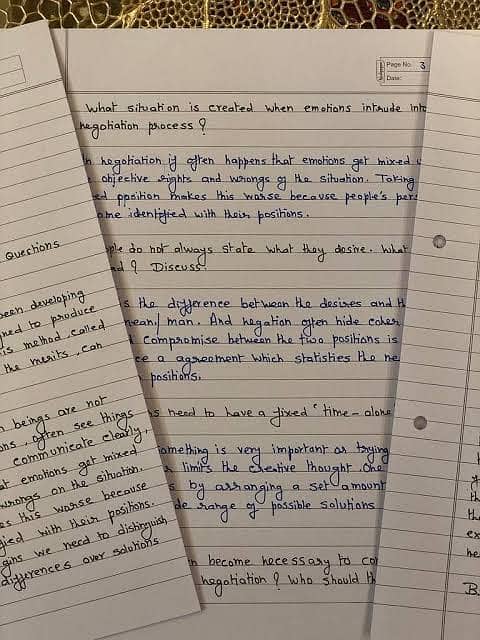 Page No. 3
Date:
What situation is created when emotions intrude
negotiation process ?
negotiation if often happens that emotions get mixed
objective rights and wrongs of the situation. Taking
ed position makes this worse because people's
identified with their positions.
do not always state what they desire. What
? Discuss.
the difference between the desires and
mean/man. And negation often hide
compromise between the two positions is
a agreement which statisties the
positions.
need to have a fixed 'time - alone
something is very important as trying
limits the creative thought. One
by arranging a set amount
range of possible solutions
become necessary to
negotiation ? Who should
Questions
been developing
to produce
is method called
the merits, can
beings are not
, often see things
communicate clearly,
emotions get mixed
wrongs on the situation.
this worse because
with their positions.
we need to distinguish
differences over solutions